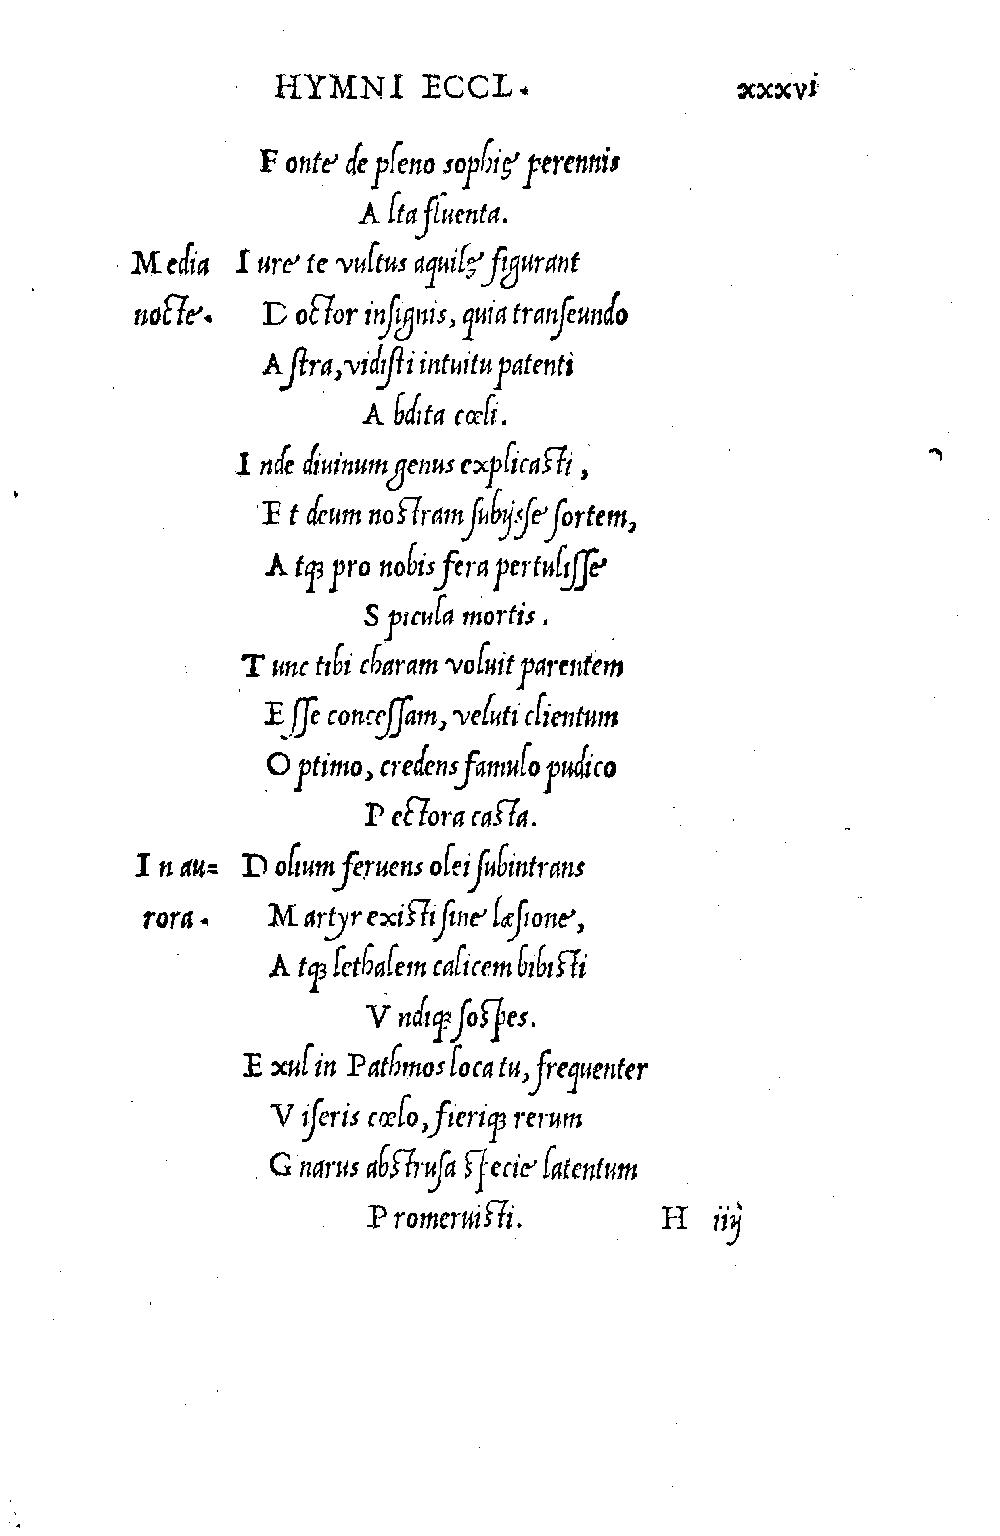 HYMNI ECCL. xxxvi
Fonte de pleno sophię perennis
Alta fluenta.
Media Iure te vultus aquilę figurant
nocte. Doctor insignis, quia transeundo
Astra, vidisti intuitu patenti
Abdita cœli.
Inde diuinum genus explicasti,
Et deum nostram subijsse sortem,
Atqꝫ pro nobis fera pertulisse
Spicula mortis.
Tunc tibi charam voluit parentem
Esse concessam, veluti clientum
Optimo, credens famulo pudico
Pectora casta.
In au= Dolium feruens olei subintrans
rora. Martyr existi sine læsione,
Atqꝫ lethalem calicem bibisti
Vndiqꝫ sospes.
Exul in Pathmos locatu, frequenter
Viseris cœlo, fieriqꝫ rerum
Gnarus abstrusa specie latentum
Promeruisti. H iiij